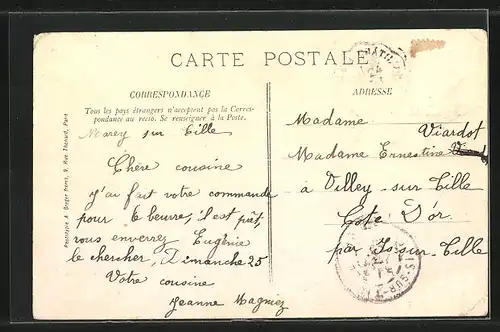 CARTE POSTALE
CORRESPONDANCE
Tous les pays étrangers n'acceptent pas la Corres-
pondance au recto. Se renseigner à la Poste.
Marey sur Tille
Chère cousine
J'ai fait votre commande
pour le beurre, il est prêt,
vous enverrez Eugénie
le chercher, Dimanche 25
Votre cousine
Jeanne Magniez
ADRESSE
Madame
Viardot
Madame Ernestine
à Villey-sur-Tille
Cote D'or
par Is-sur-Tille
Phototypie A. Breger frères, 9, Rue Thénard, Paris
IS-SUR